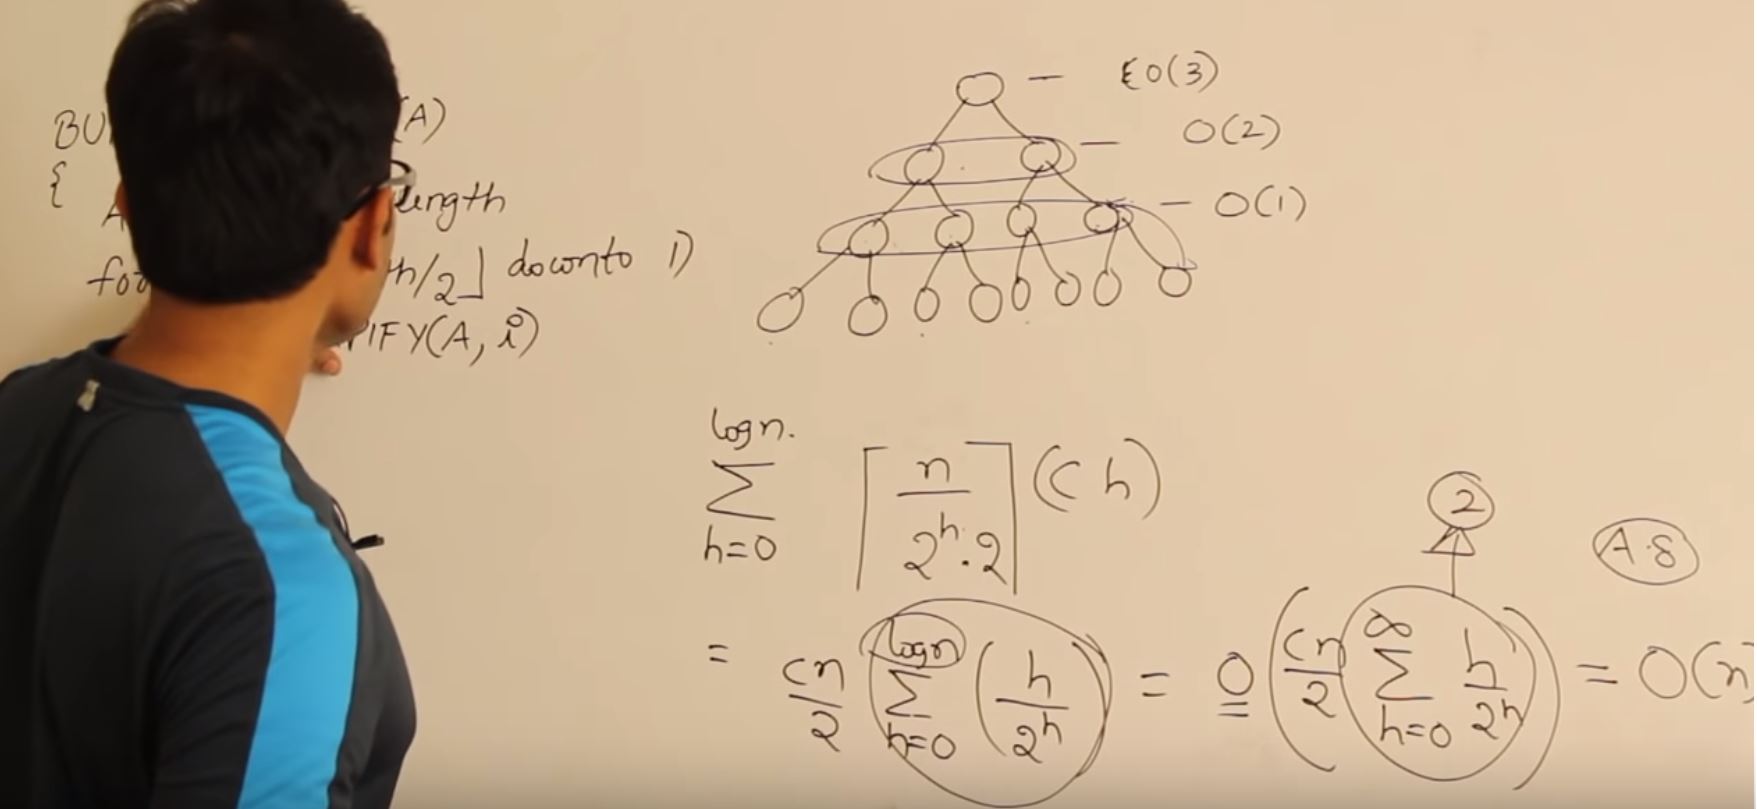 BU (A)
{
A length
for n/2⌋ downto 1)
PIFY(A, i)
— O(3)
— O(2)
— O(1)
log n.
∑ ⌈n / 2^h · 2⌉ (c h)
h=0
= cn/2 ∑_{h=0}^{log n} (h/2^h) = O(cn/2 ∑_{h=0}^{∞} h/2^h) = O(n)
2
A.8